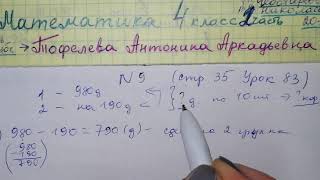 Математика 4 класс 2 часть
→ Тофелева Антонина Аркадьевна
№ 9 (стр. 35 Урок 83)
1 – 980д
2 – на 190д < ? д. по 10 шт → ? кор
980 – 190 = 790 (д) – 2 группа
980
– 190
790